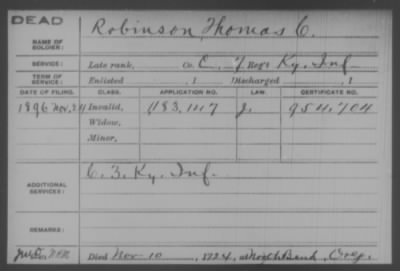 DEAD
Robinson, Thomas C.
NAME OF SOLDIER:
SERVICE: Late rank, Co. C, Reg't Ky. Inf.
TERM OF SERVICE: Enlisted , 1 Discharged , 1
DATE OF FILING. CLASS. APPLICATION NO. LAW. CERTIFICATE NO.
1896 Nov. 24 Invalid, 1183,147 J. 954,704
Widow,
Minor,
C. 3. Ky. Inf.
ADDITIONAL SERVICES:
REMARKS:
Died Nov. 10, 1924, at North Bend, Oreg.